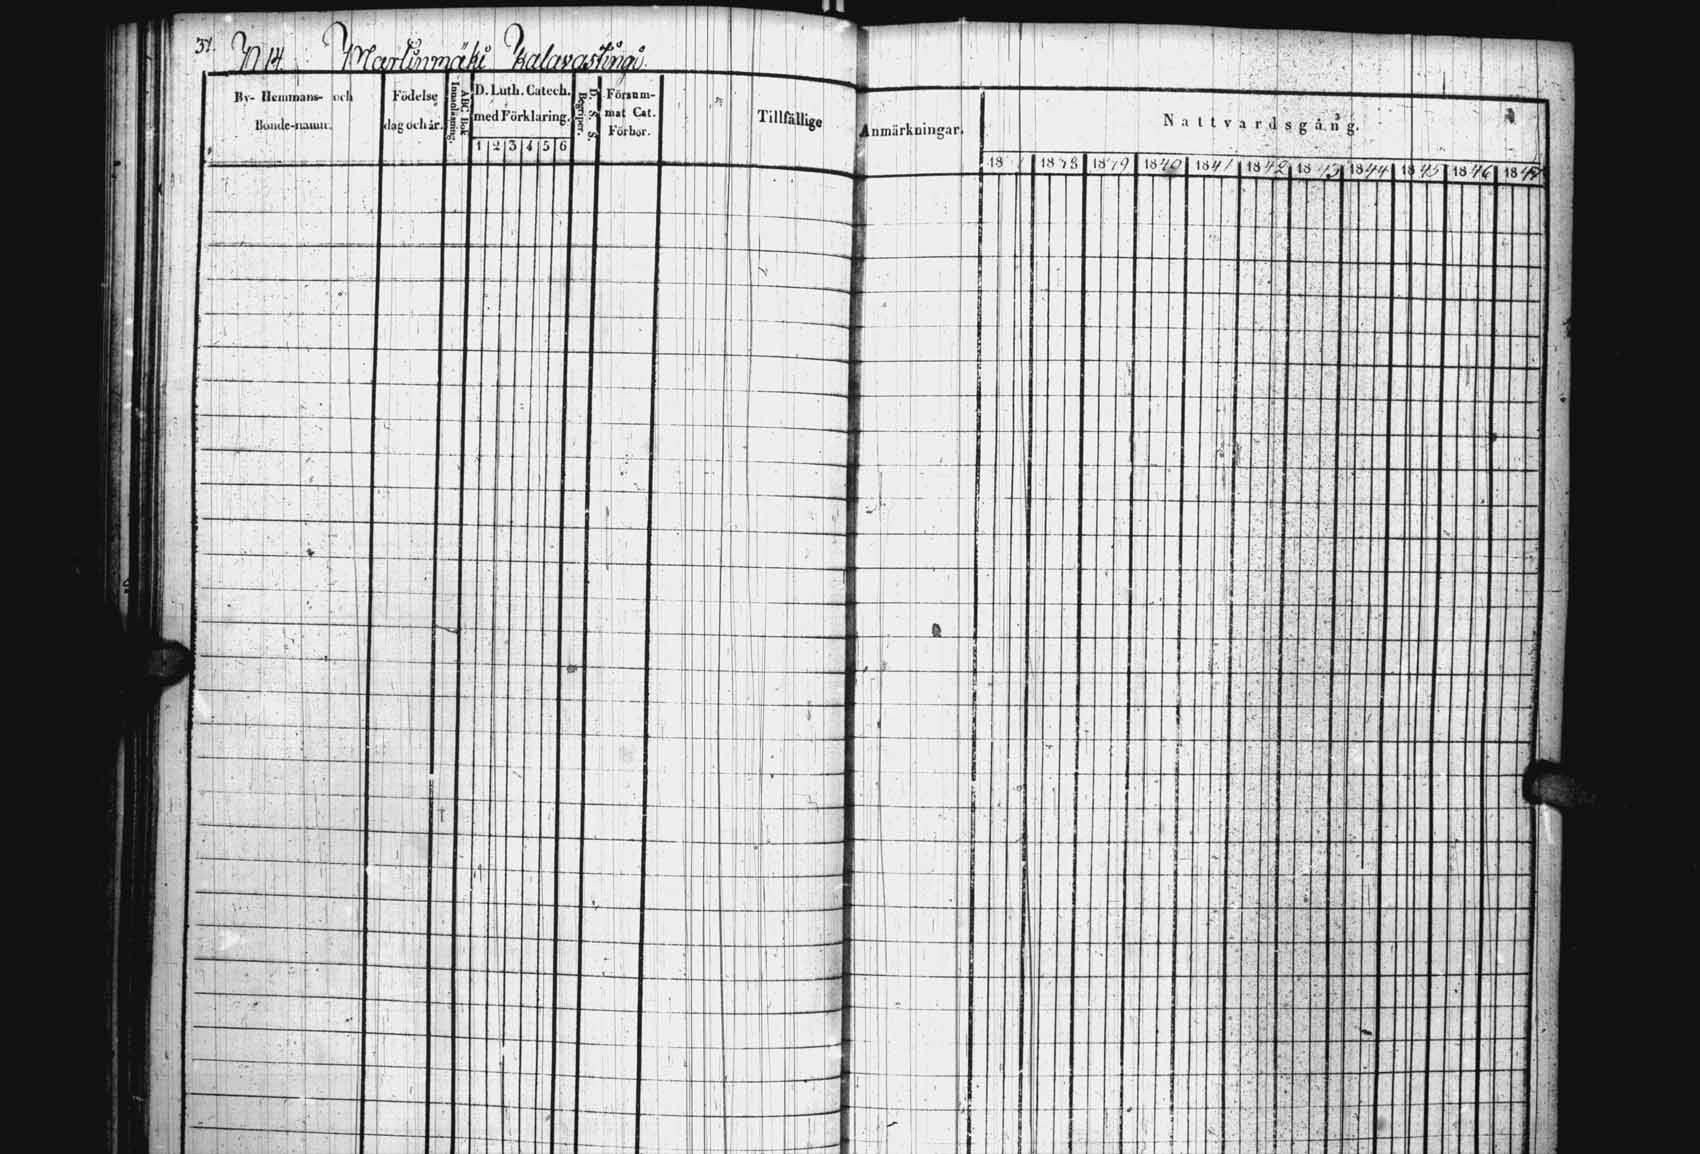 37.
N 14 Martinmäki Kalavastingi.
By- Hemmans- och
Bonde-namn.
Födelse
dag och år.
ABC Bok
Innanläsning.
D. Luth. Catech.
med Förklaring.
1 2 3 4 5 6
D. S. S.
Begriper.
Försum-
mat Cat.
Förhör.
Tillfällige
Anmärkningar.
Nattvardsgång.
18 1838 1839 1840 1841 1842 1843 1844 1845 1846 1847